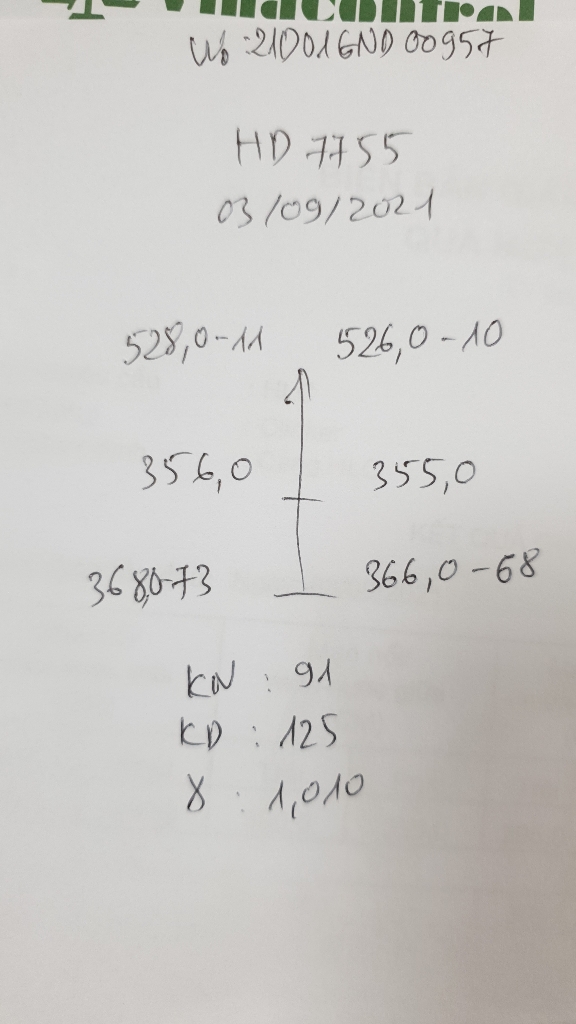 Vinacontrol
Vo: 21D01GND00957
HD 7755
03/09/2021
528,0-11 526,0-10
356,0 355,0
368,0-73 366,0-68
KN : 91
KD : 125
γ : 1,010